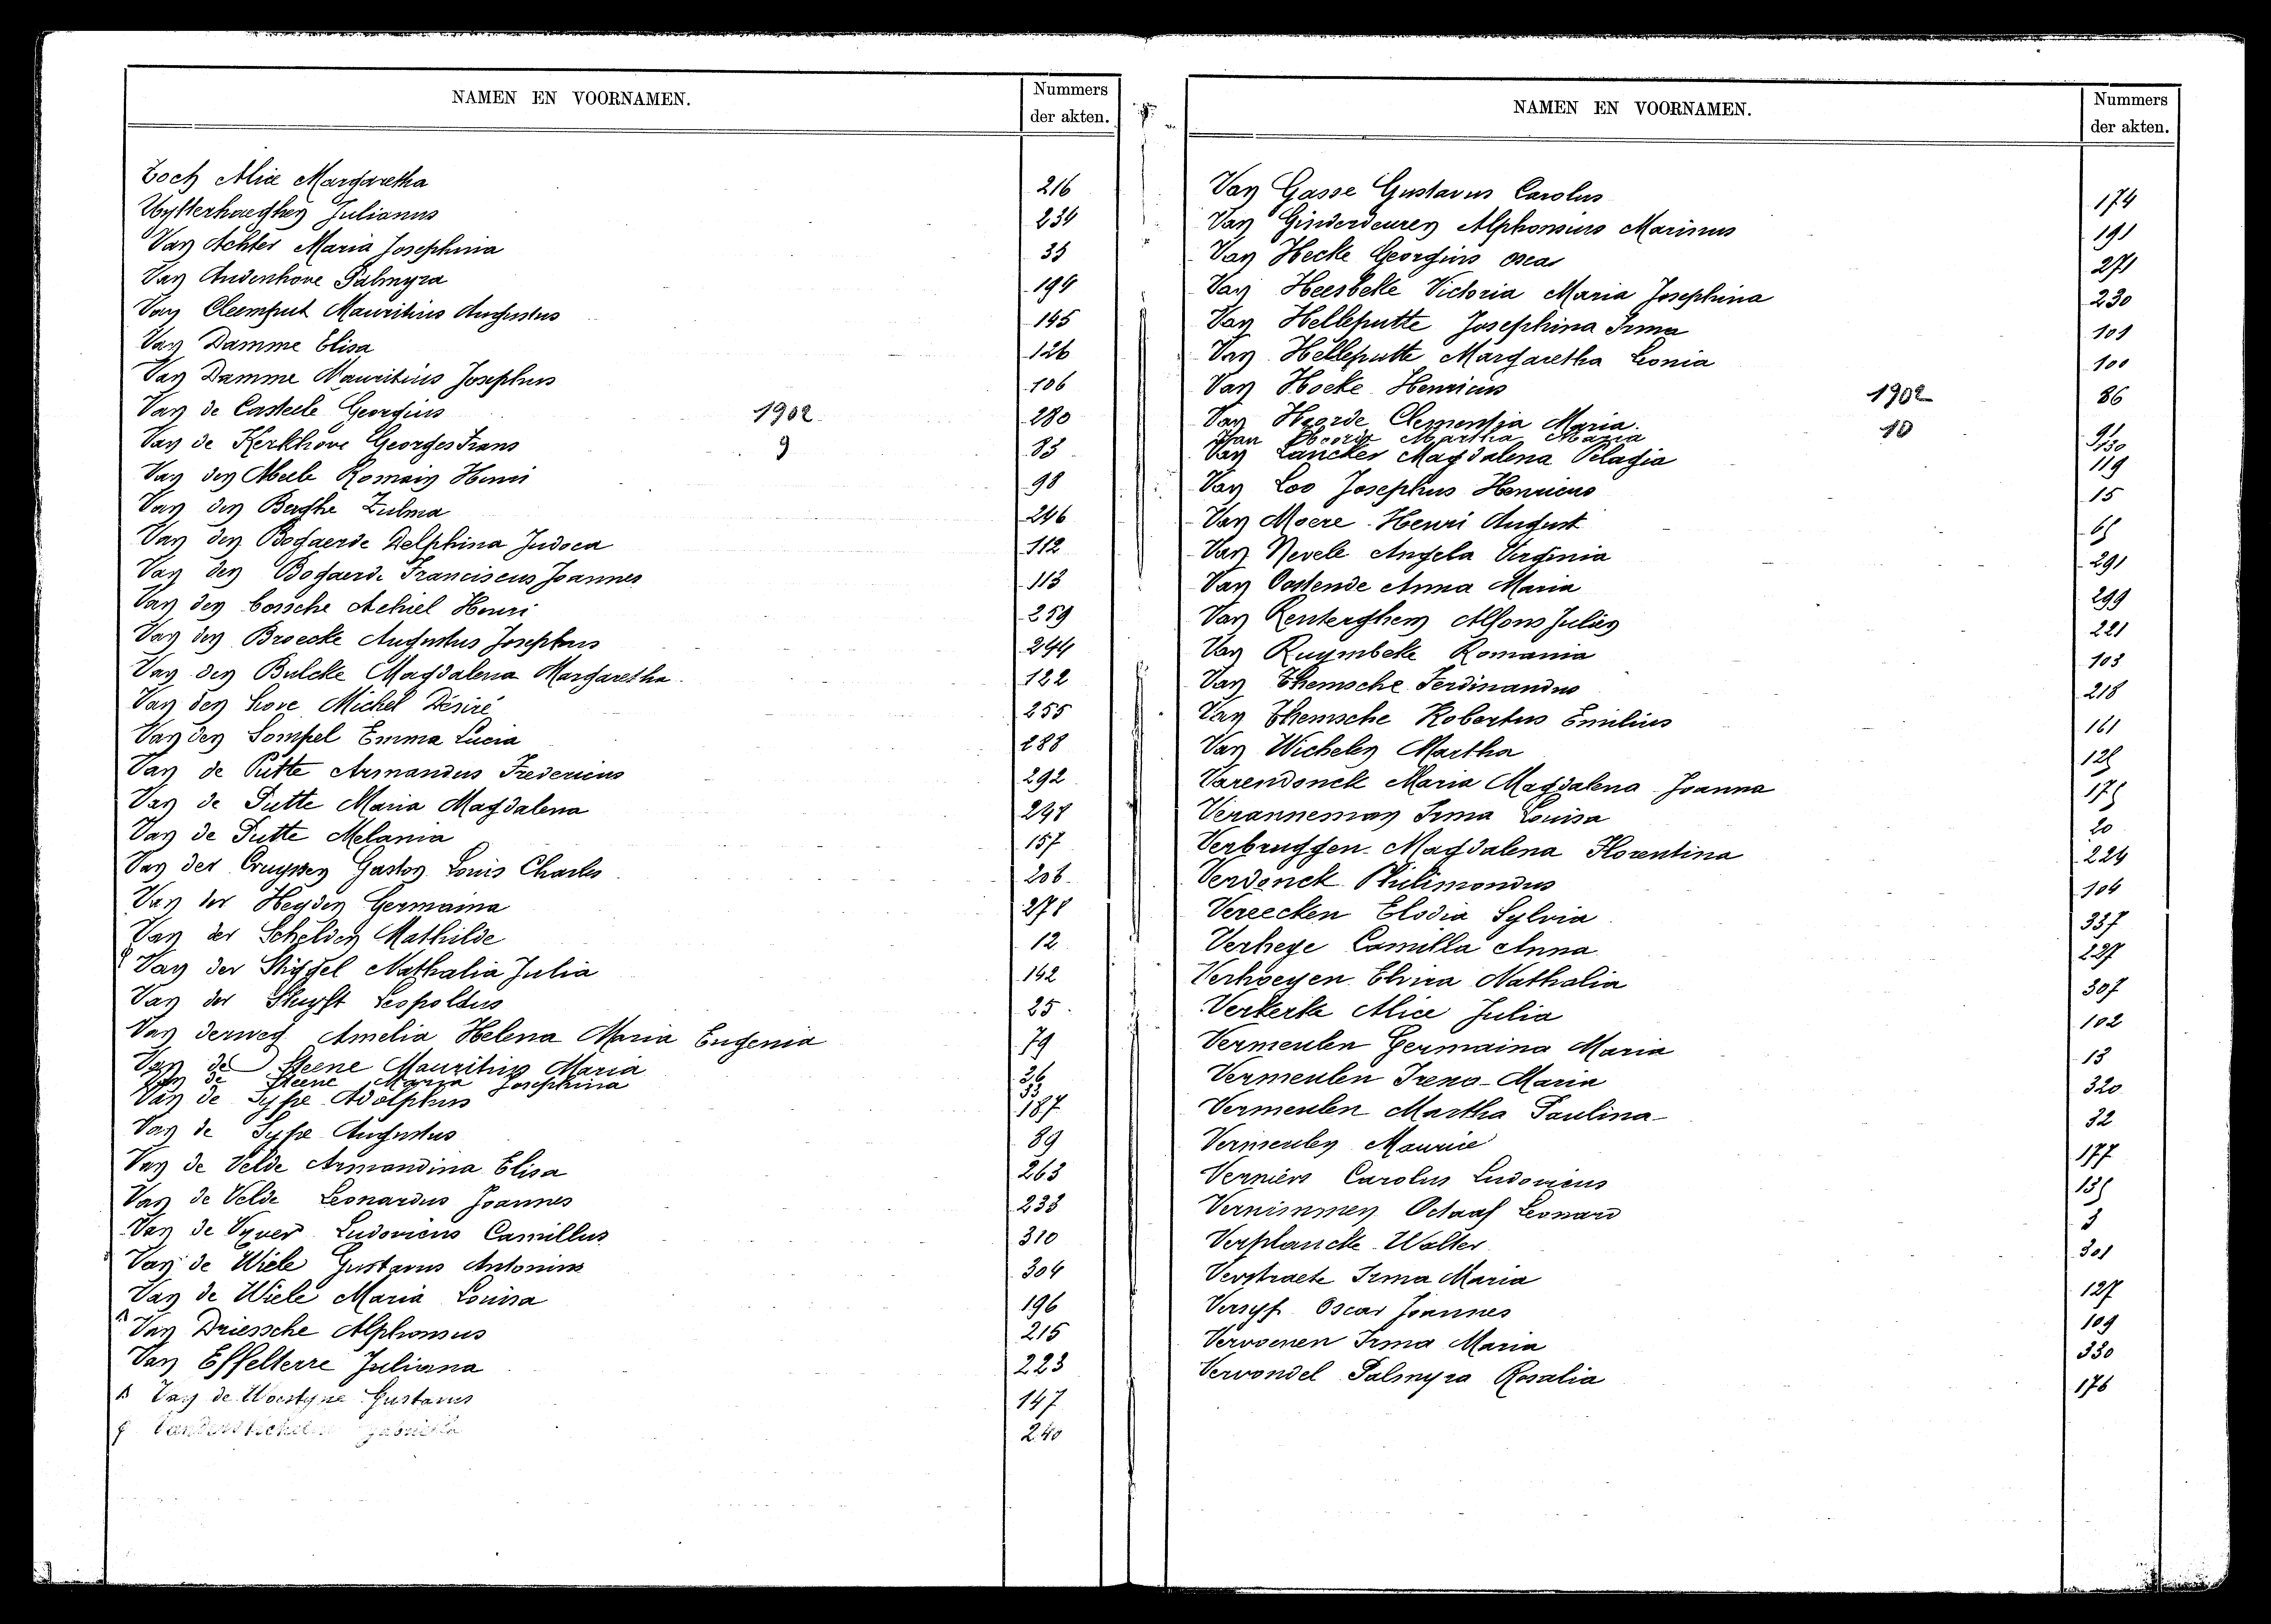 NAMEN EN VOORNAMEN.
Nummers der akten.
Toch Alice Margaretha 216
Uytterhaeghen Julianus 234
Van Achter Maria Josephina 35
Van Audenhove Palmyra 194
Van Cleemput Mauritius Augustus 145
Van Damme Elisa 126
Van Damme Mauritius Josephus 106
Van de Casteele Georgius 1902 280
Van de Kerkhove Georges Frans 9 83
Van den Abeele Romain Henri 98
Van den Berghe Zulma 246
Van den Bogaerde Delphina Judoca 112
Van den Bogaerde Franciscus Joannes 113
Van den bossche Achiel Henri 259
Van den Broecke Augustus Josephus 244
Van den Bulcke Magdalena Margaretha 122
Van den hove Michel Désiré 255
Van den Sompel Emma Lucia 288
Van de Putte Armandus Fredericus 292
Van de Putte Maria Magdalena 298
Van de Putte Melania 157
Van der Cruyssen Gaston Louis Charles 206
Van der Heyden Germaina 278
Van der Schelden Mathilde 12
Van der Stiggel Nathalia Julia 142
Van der Stuyft Leopoldus 25
Van derweg Amelia Helena Maria Eugenia 79
Van de Steene Mauritius Maria 26
Van de Steene Maria Josephina 33
Van de Sype Adolphus 187
Van de Sype Augustus 89
Van de Velde Armandina Elisa 263
Van de Velde Leonardus Joannes 233
Van de Vyver Ludovicus Camillus 310
Van de Wiele Gustavus Antonius 304
Van de Wiele Maria Louisa 196
Van Driessche Alphonsus 215
Van Effelterre Juliana 223
Van de Woestyne Gustavus 147
240
NAMEN EN VOORNAMEN.
Nummers der akten.
Van Gasse Gustavus Carolus 174
Van Ginderdeuren Alphonsius Marinus 191
Van Hecke Georgius oscar 271
Van Heesbeke Victoria Maria Josephina 230
Van Helleputte Josephina Irma 101
Van Helleputte Margaretha Leonia 100
Van Hoeke Henricus 1902 86
Van Hoorde Clementia Maria 10 91
Van Martha Maria 130
Van Lancker Magdalena Pelagia 119
Van Loo Josephus Henricus 15
Van Moere Henri August 65
Van Nevele Angela Virginia 291
Van Oostende Anna Maria 299
Van Renterghem Alfons Julien 221
Van Ruymbeke Romania 103
Van Themsche Ferdinandus 218
Van Themsche Robertus Emilius 161
Van Wichelen Martha 125
Varendonck Maria Magdalena Joanna 175
Veranneman Irma Louisa 20
Verbruggen Magdalena Florentina 224
Verdonck Philimondus 104
Vereecken Elodia Sylvia 337
Verheye Camilla Anna 227
Verhoeyen Elvira Nathalia 307
Verkerke Alice Julia 102
Vermeulen Germaina Maria 13
Vermeulen Irena Maria 320
Vermeulen Martha Paulina 32
Vermeulen Maurice 177
Verniers Carolus Ludovicus 135
Vernimmen Octaaf Leonard 3
Verplancke Walter 301
Verstraete Irma Maria 127
Versyp Oscar Joannes 109
Vervoenen Irma Maria 330
Vervondel Palmyra Rosalia 176